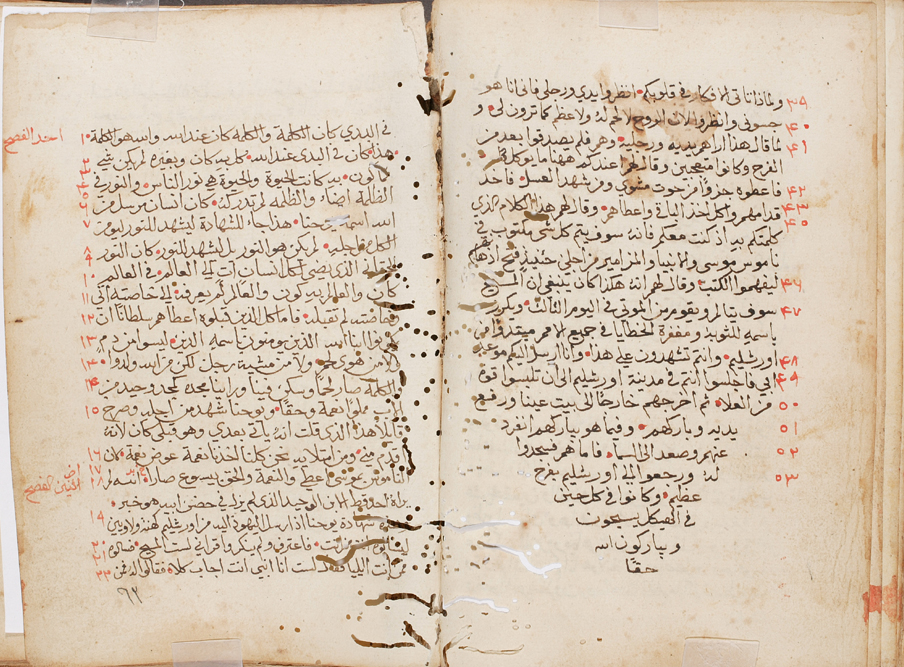 ولماذا تاتي الافكار في قلوبكم انظروا يدي ورجلي فاني انا هو ٣٩
جسوني وانظروا لان الروح لا لحم له ولا عظم كما ترون لي و ٤٠
لما قال هذا اراهم يديه ورجليه وهم فلم يصدقوا بعد من ٤١
الفرح وكانوا متعجبين وقال لهم عندكم ههنا ما يوكل
فاعطوه جزوًا من حوت مشوي ومن شهد العسل فاخذ ٤٢
قدامهم واكل اخذ الباقي واعطاهم وقال لهم هذا الكلام الذي ٤٣
كلمتكم به اذ كنت معكم فانه سوف يتم كل شي مكتوب في
ناموس موسى والانبيا والمزامير من اجلي حينيذ فتح اذهانهم ٤٥
ليفهموا الكتب وقال لهم انه هكذا كان ينبغي ان المسيح ٤٦
سوف يتالم ويقوم من الموتى في اليوم الثالث ويكرز ٤٧
باسمه للتوبه ومغفرة الخطايا في جميع الامم مبتدا من
اورشليم وانتم تشهدون على هذا وانا ارسل اليكم موعد ٤٨
ابي فاجلسوا انتم في مدينة اورشليم الى ان تلبسوا قوة ٤٩
من العلا ثم اخرجهم خارجًا الى بيت عينا ورفع ٥٠
يديه وباركهم وفيما هو يباركهم انفرد ٥١
عنهم وصعد الى السما فاما هم فسجدوا ٥٢
له ورجعوا الى اورشليم بفرح ٥٣
عظيم وكانوا في كل حين
في الهيكل يسبحون
ويباركون الله
حقًا
في البدي كان الكلمة والكلمة كان عند الله والله هو الكلمة
هذا كان في البدي عند الله كل به كان وبغيره لم يكن شي
مما كون به كانت الحيوة والحيوة هي نور الناس والنور في
الظلمة اضاء والظلمة لم تدركه كان انسان مرسل من
الله اسمه يوحنا هذا جاء للشهادة ليشهد للنور ليومن
الكل من اجله لم يكن هو النور بل ليشهد للنور كان النور
الذي يضي لكل انسان آت الى العالم في العالم
كان والعالم به كون والعالم لم يعرفه الى خاصته اتى
وخاصته لم تقبله فاما كل الذين قبلوه اعطاهم سلطانًا ان
يكونوا ابناء الله الذين يومنون باسمه الذين ليسوا من دم
ولا من هوى لحم ولا من مشية رجل لكن من الله ولدوا
والكلمة صار لحمًا وسكن فينا وراينا مجده كمجد وحيد من
الاب مملوا نعمة وحقًا ويوحنا شهد من اجله وصرخ
قايلًا هذا الذي قلت انه ياتي بعدي وهو قبلي كان لانه
اقدم مني ومن امتلايه نحن كلنا اخذنا نعمة عوض نعمة لان
الناموس بموسى اعطي والنعمة والحق بيسوع صارا الله لم
يراه احد قط الابن الوحيد الذي لم يزل في حضن ابيه هو خبر
شهادة يوحنا اذ ارسل اليهود اليه من اورشليم كهنة ولاويين
ليسالوه انت من انت فاعترف ولم ينكر واقر اني لست المسيح فسالوه
فمن انت ايليا فقال لست انا النبي انت اجاب كلا فقالوا له فمن
٩٢